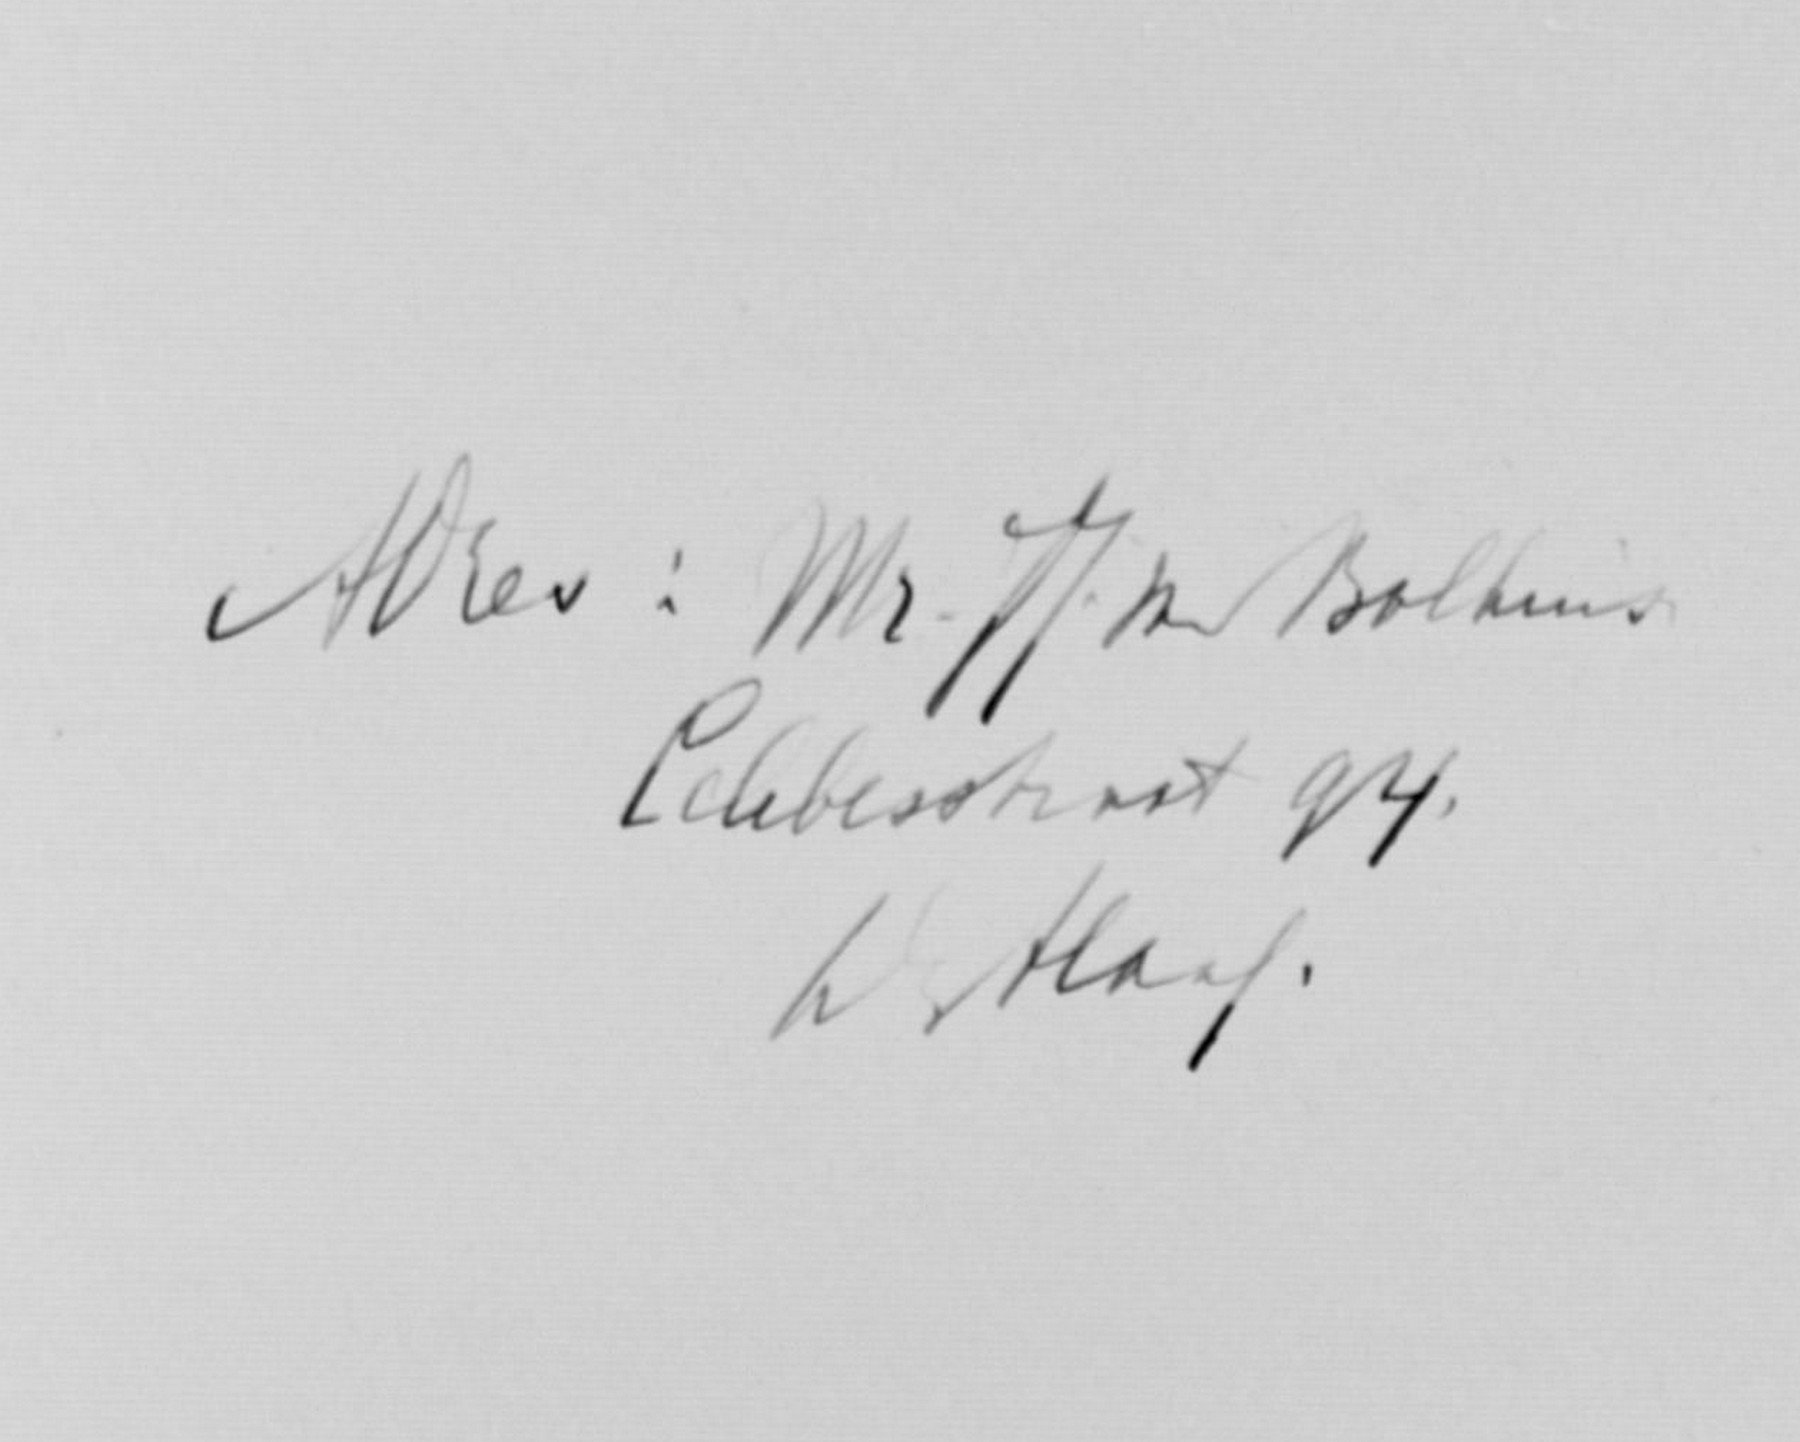 Adres : Mr. H. M Bolhuis
Celebesstraat 94.
Haag.